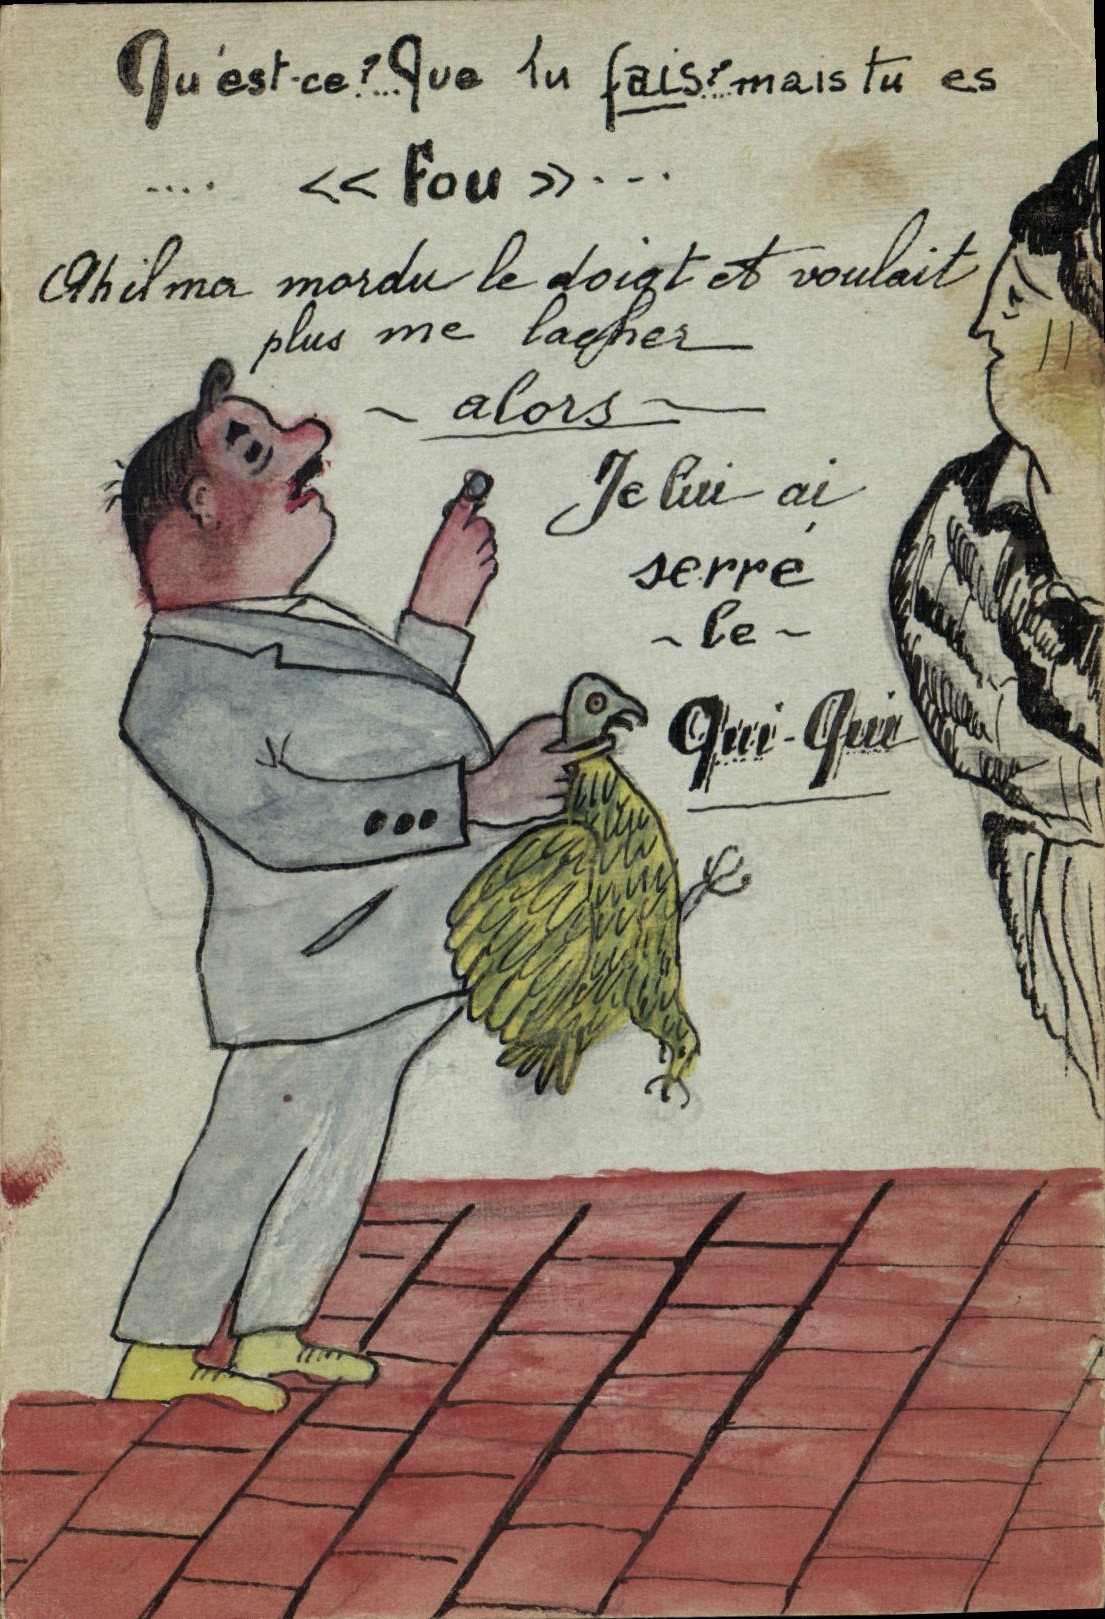 Qu'est-ce?...Que tu fais?...mais tu es
.... << Fou >>....
Ah il ma mordu le doigt et voulait
plus me lacher
~ alors ~
Je lui ai
serré
~ le ~
Qui-Qui